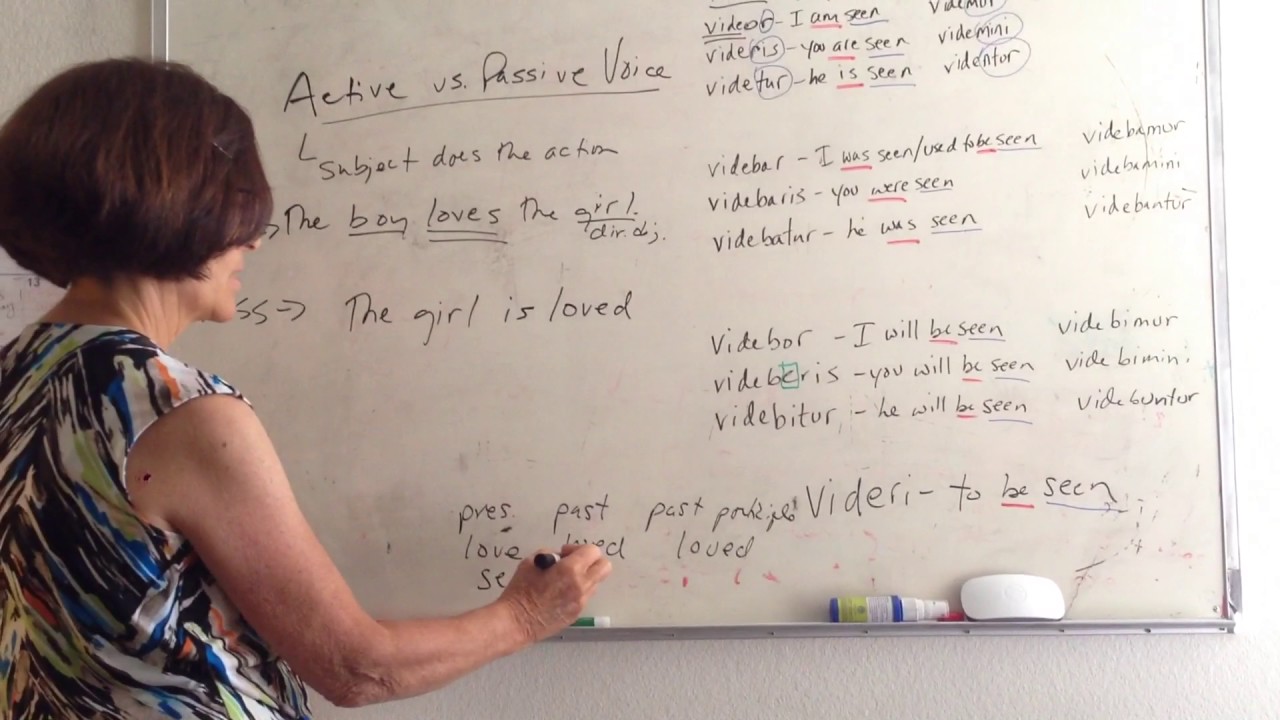 Active vs. Passive Voice
Subject does the action
The boy loves the girl.
dir. obj.
ss → The girl is loved
pres. past past participle
love loved loved
se
videor - I am seen videmur
videris - you are seen videmini
videtur - he is seen videntur
videbar - I was seen/used to be seen videbamur
videbaris - you were seen videbamini
videbatur - he was seen videbantur
videbor - I will be seen videbimur
videberis - you will be seen videbimini
videbitur - he will be seen videbuntur
Videri - to be seen
13